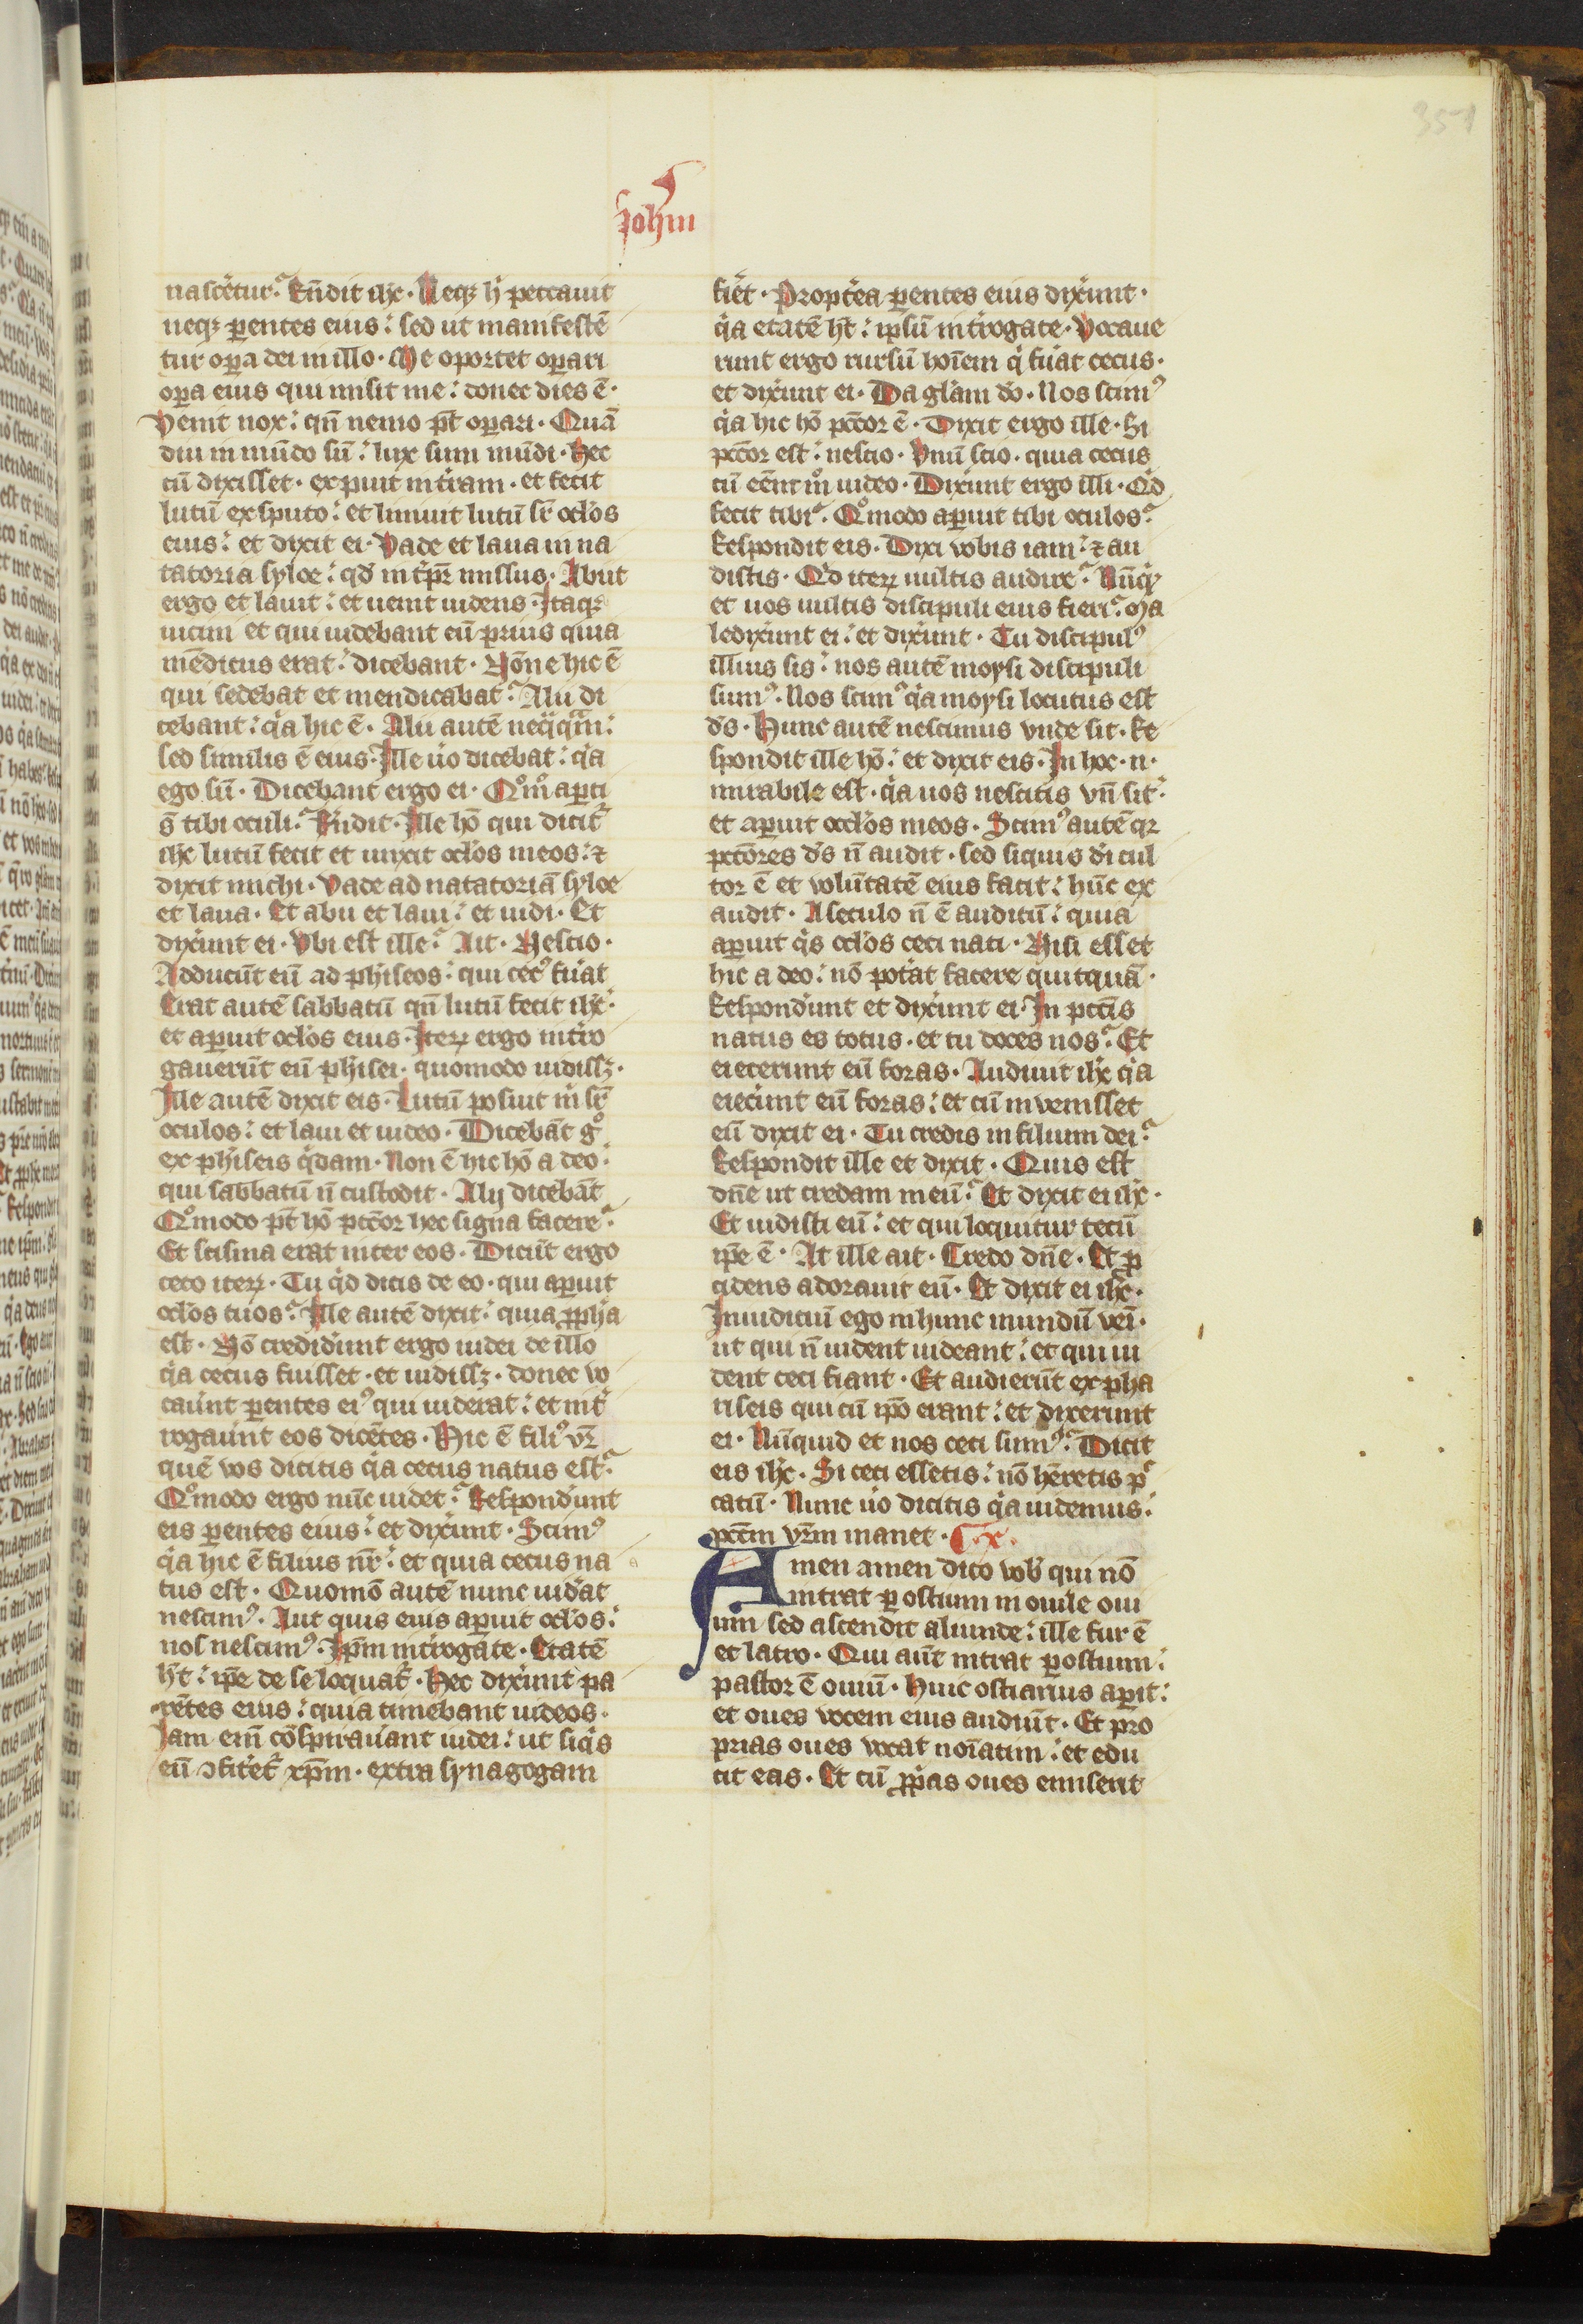 351
Johan
nasceretur. Rñdit ihc. Neqz h' peccauit
neqz parentes eius: sed ut manifestē
tur opa dei in illo. Me oportet opari
opa eius qui misit me: donec dies ē.
Venit nox: qn̄ nemo pt̄ opari. Quā
diu in mūdo sū: lux sum mūdi. Hec
cū dixisset. expuit in t'ram. et fecit
lutū ex sputo: et liniuit lutū sr̄ oclos
eius: et dixit ei. Vade et laua in na
tatoria syloe: qd' int'pr̄ missus. Abiit
ergo et lauit: et uenit uidens. Itaqz
uicini et qui uidebant eū prius quia
mēdicus erat: dicebant. Nōne hic ē
qui sedebat et mendicabat? Alii di
cebant: q'a hic ē. Alii autē neq̄qm̄:
sed similis ē eius. Ille u'o dicebat: q'a
ego sū. Dicebant ergo ei. Qom̊ apti
s̄ tibi oculi? Rñdit. Ille hō qui dicit'
ihc lutū fecit et unxit oclos meos: ⁊
dixit michi. Vade ad natatoriā syloe
et laua. Et abii et laui: et uidi. Et
dixunt ei. Vbi est ille? Ait. Nescio.
Adducūt eū ad ph'iseos: qui cec⁹ fu'at
Erat autē sabbatū qn̄ lutū fecit ihc:
et aperuit oclos eius. Iterꝝ ergo int'ro
gauerūt eū ph'isei. quomodo uidissz.
Ille autē dixit eis. Lutū posuit m' sr̄
oculos: et laui et uideo. Dicebāt g°
ex ph'iseis q'dam. Non ē hic hō a deo:
qui sabbatū n̄ custodit. Alij dicebāt
Qomodo pt̄ hō pctōr hec signa facere?
Et scisma erat inter eos. Dicūt ergo
ceco iterꝝ. Tu q'd dicis de eo. qui aperuit
oclos tuos? Ille autē dixit: quia ꝓph'a
est. Nō credidunt ergo iudei de illo
q'a cecus fuisset. et uidissz. donec uo
cau'nt parentes ei⁹ qui uiderat: et int'
rogau'nt eos dicētes. Hic ē fili⁹ vr̄
quē vos dicitis q'a cecus natus est?
Qomodo ergo nūc uidet? Respond'unt
eis parentes eius: et dixunt. Scim⁹
q'a hic ē filius nr̄: et quia cecus na
tus est. Quomō autē nunc uid'at
nescim⁹. Aut quis eius aperuit oclos:
nos nescim⁹. Ipm̄ int'rogate. Etatē
ht: ip̄e de se loquat'. Hec dixunt pa
rētes eius: quia timebant iudeos.
Iam em̄ cōspirau'ant iudei: ut siq's
eū ↄfitēt' xp̄m. extra synagogam
fiēt. Propt'ea parentes eius dixunt.
q'a etatē ht: ipsū int'rogate. Vocaue
runt ergo rursū hoīem q' fu'at cecus.
et dixunt ei. Da gl'am dō. Nos scim⁹
q'a hic hō pctōr ē. Dixit ergo ille. Si
pctōr est: nescio. Vnū scio. quia cecus
cū eēm m° uideo. Dixunt ergo illi. Q'd
fecit tibi? Qomodo aperuit tibi oculos?
Respondit eis. Dixi vobis iam: ⁊ au
distis. Q'd iterꝝ uultis audire? Nūq'd
et uos uultis discipuli eius fieri? Ma
ledixunt ei: et dixunt. Tu discipul⁹
illius sis: nos autē moysi discipuli
sum⁹. Nos scim⁹ q'a moysi locutus est
d's. Hunc autē nescimus vnde sit. Re
spondit ille hō: et dixit eis. In hoc. n.
mirabile est. q'a uos nescitis vn̄ sit:
et aperuit oclos meos. Scim⁹ autē qz
pctōres d's n̄ audit. sed siquis d'i cul
tor ē et volūtatē eius facit: hūc ex
audit. A seculo n̄ ē auditū: quia
aperuit q's oclos ceci nati. Nisi esset
hic a deo: nō pot'at facere quitquā.
Respond'unt et dixunt ei. In pctīs
natus es totus. et tu doces nos? Et
eiecerunt eū foras. Audiuit ihc q'a
eiec'unt eū foras: et cū invenisset
eū dixit ei. Tu credis in filium dei?
Respondit ille et dixit. Quis est
dn̄e ut credam in eū? Et dixit ei ihc.
Et uidisti eū: et qui loquitur tecū
ip̄e ē. At ille ait. Credo dn̄e. Et ꝓ
cidens adorauit eū. Et dixit ei ihc.
In iudiciū ego in hunc mundū veī.
ut qui n̄ uident uideant: et qui ui
dent ceci fiant. Et audierūt ex pha
riseis qui cū ipō erant: et dixerunt
ei. Nūquid et nos ceci sum⁹? Dicit
eis ihc. Si ceci essetis: nō hēretis p̄
catū. Nunc u'o dicitis q'a uidemus:
pctm̄ vr̄m manet. C. x.
Amen amen dico vob' qui nō
intrat p ostium in ouile oui
um sed ascendit aliunde: ille fur ē
et latro. Qui aut intrat p ostium:
pastor ē ouiū. Huic ostiarius aperit:
et oues vocem eius audiūt. Et pro
prias oues vocat noīatim: et edu
cit eas. Et cū ꝓprias oues emiserit